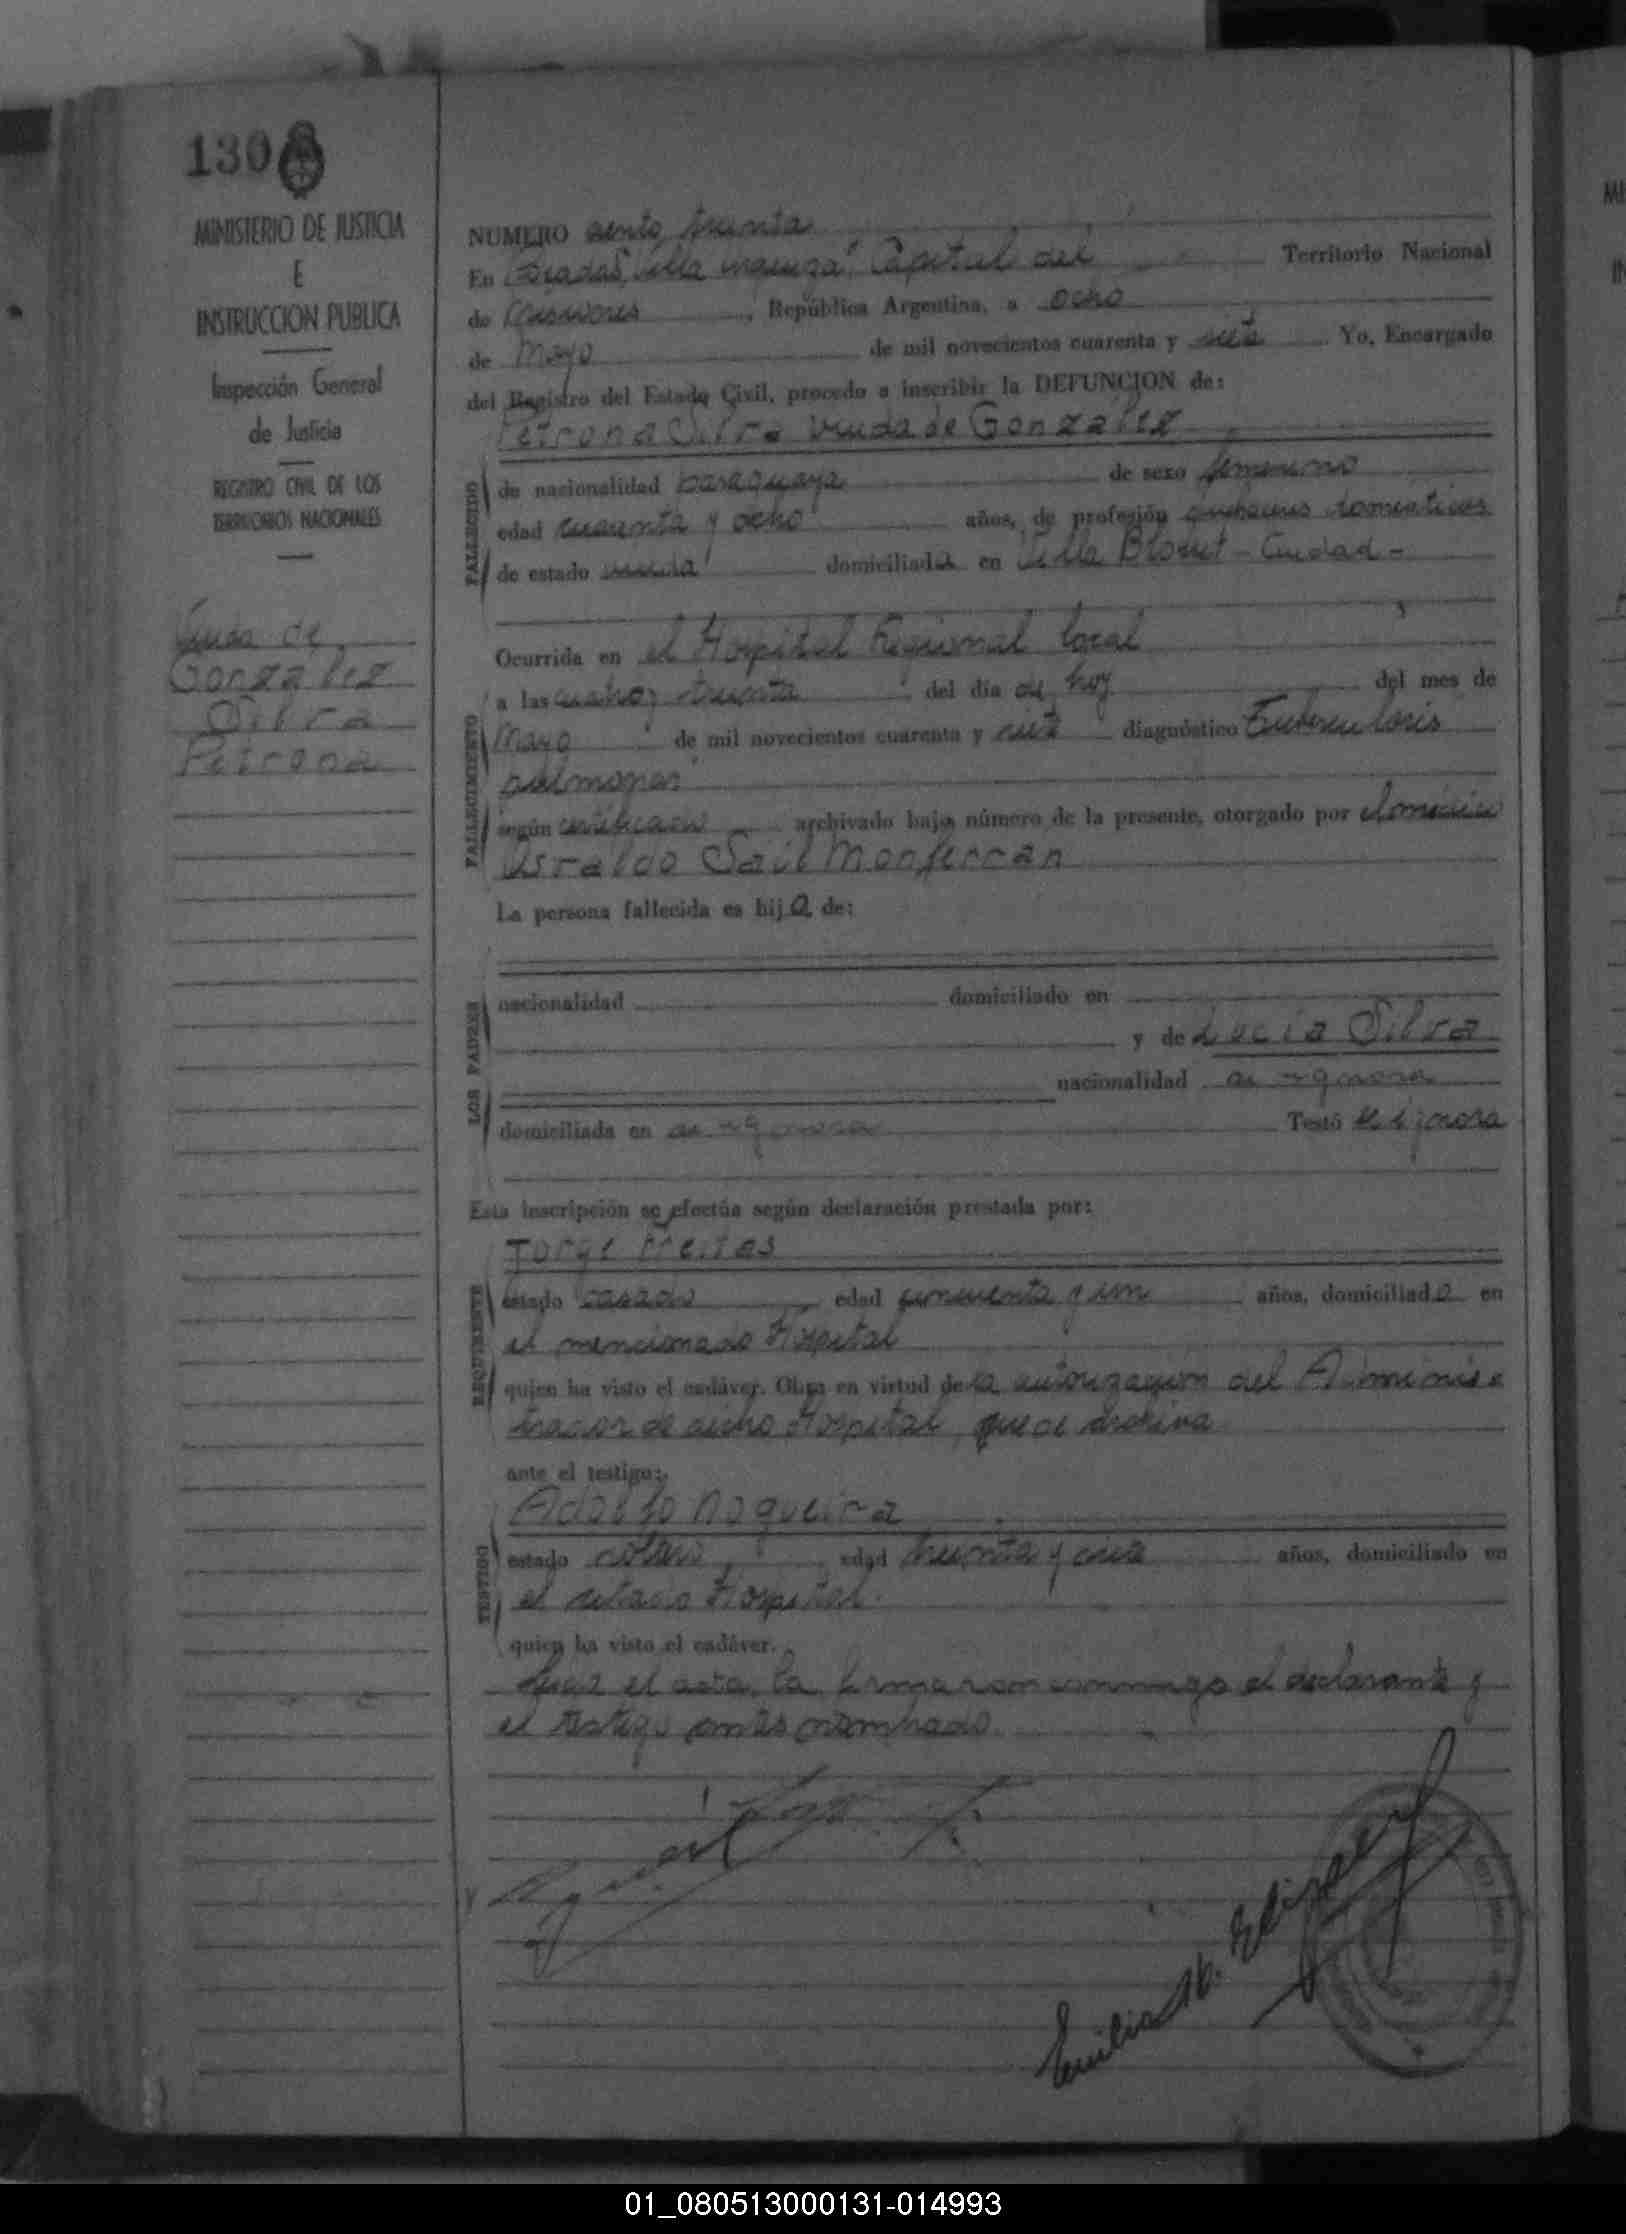 130
MINISTERIO DE JUSTICIA
E
INSTRUCCION PUBLICA
Inspección General
de Justicia
REGISTRO CIVIL DE LOS
TERRITORIOS NACIONALES
Viuda de
Gonzalez
Silva
Petrona
NUMERO ciento treinta
En Posadas, Villa Capital del Territorio Nacional
de Misiones, República Argentina, a ocho
de Mayo de mil novecientos cuarenta y siete Yo, Encargado
del Registro del Estado Civil, procedo a inscribir la DEFUNCION de:
Petrona Silva Viuda de Gonzalez
FALLECIDO
de nacionalidad paraguaya de sexo femenino
edad cuarenta y ocho años, de profesión quehaceres domesticos
de estado viuda domiciliada en Villa Blosset - Ciudad -
FALLECIMIENTO
Ocurrida en el Hospital Regional local
a las cuatro y treinta del día de hoy del mes de
Mayo de mil novecientos cuarenta y siete diagnóstico Tuberculosis
pulmonar
según certificado archivado bajo número de la presente, otorgado por el médico
Osvaldo Saúl Monferran
La persona fallecida es hija de:
LOS PADRES
nacionalidad domiciliado en
y de Lucia Silva
nacionalidad se ignora
domiciliada en se ignora Testó se ignora
Esta inscripción se efectúa según declaración prestada por:
REQUIRENTE
Jorge Freitas
estado casado edad cincuenta y un años, domiciliado en
el mencionado Hospital
quien ha visto el cadáver. Obra en virtud de la autorización del Adminis-
trador de dicho Hospital, que se archiva
ante el testigo:
TESTIGO
Adolfo Nogueira
estado soltero, edad treinta y siete años, domiciliado en
el citado Hospital.
quien ha visto el cadáver.
Leída el acta, la firmaron conmigo el declarante y
el testigo antes nombrado.
Emilia M.
01_080513000131-014993